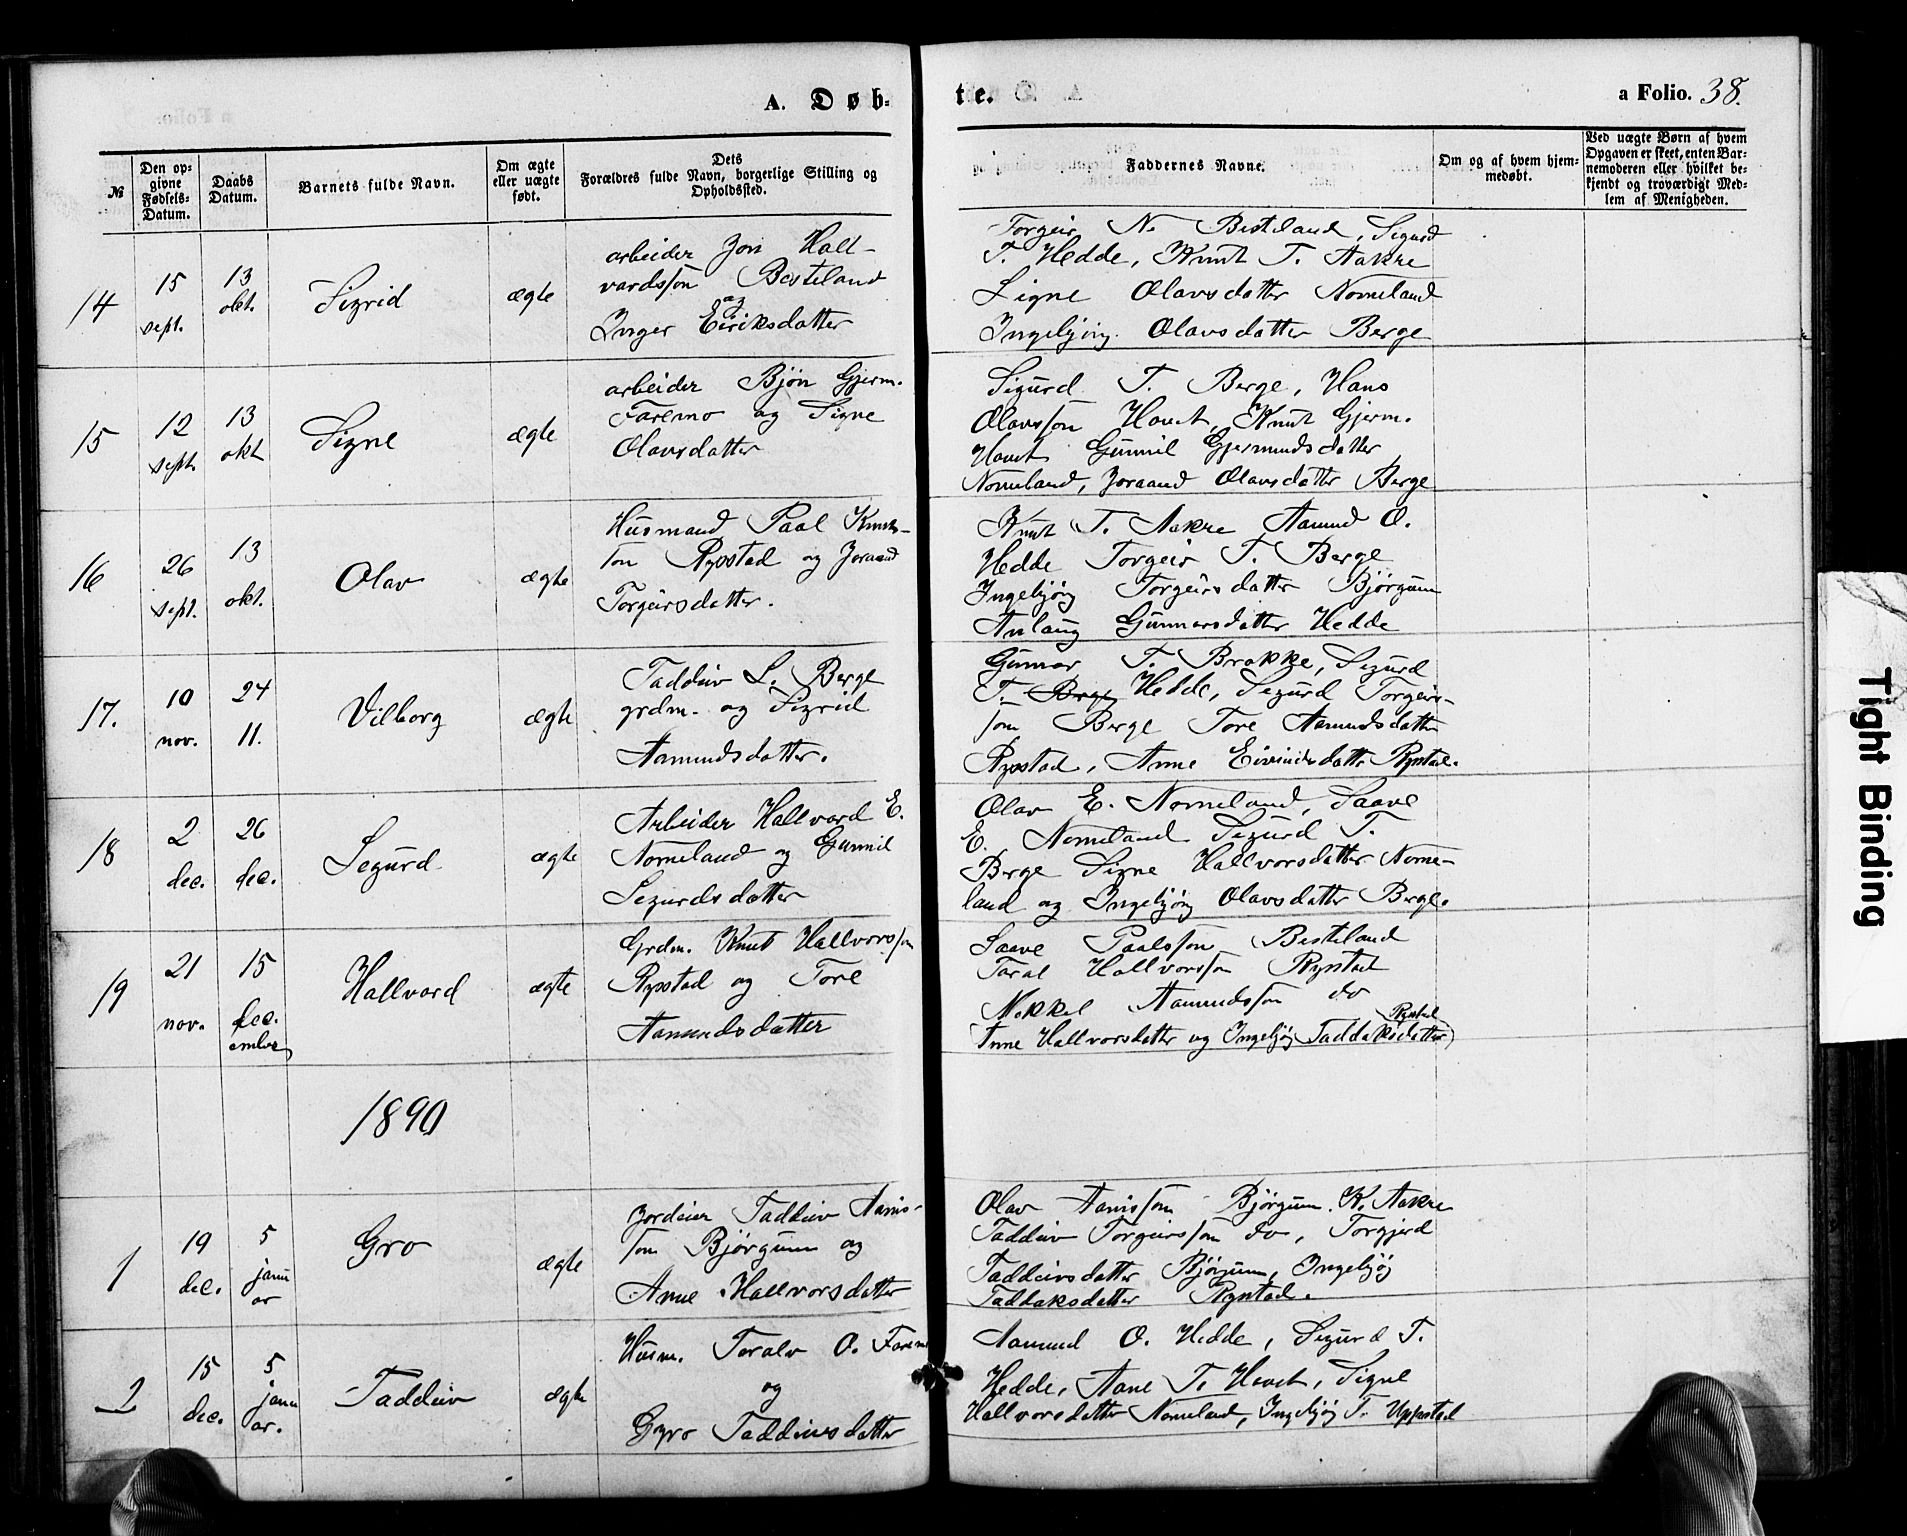 A. Døb-
te.
a Folio. 38.
№
Den op-
givne
Fødsels-
Datum.
Daabs
Datum.
Barnets fulde Navn.
Om ægte
eller uægte
født.
Dets
Forældres fulde Navn, borgerlige Stilling og
Opholdssted.
Faddernes Navne.
Om og af hvem hjem-
medøbt.
Ved uægte Børn af hvem
Opgaven er skeet, enten Bar-
nemoderen eller hvilket be-
kjendt og troværdigt Med-
lem af Menigheden.
14
15
sept.
13
okt.
Sigrid
ægte
arbeider Jon Hall-
vardsson Besteland
og
Inger Eiriksdatter
Torgeir N. Besteland, Sigurd
T. Hedde, Knut T. Aakre
Signe Olavsdatter Nomeland
Ingebjørg Olavsdatter Berge
15
12
sept.
13
okt
Signe
ægte
arbeider Bjøn Gjerm.
Faremo og Signe
Olavsdatter
Sigurd T. Berge, Hans
Olavsson Hovet, Knut Gjerm.
Hovet Gunnil Gjermundsdatter
Nomeland, Joraand Olavsdatter Berge
16
26
sept.
13
okt.
Olav
ægte
Husmand Paal Knuts-
son Rysstad og Joraand
Torgeirsdatter.
Knut T. Aakre Aamund O.
Hedde Torgeir T. Berge
Ingebjørg Torgeirsdatter Bjørgum
Anlaug Gunnarsdatter Hedde
17.
10
nov.
24
11.
Vilborg
ægte
Taddeiv L. Berge
grdm. og Sigrid
Aamundsdatter.
Gunnar T. Brokke, Sigurd
T. Berge Hedde, Sigurd Torgeirs-
son Berge Tore Aamundsdatter
Rysstad, Anne Eivindsdatter Rystad.
18
2
dec.
26
dec.
Segurd
ægte
Arbeider Hallvard E.
Nomeland og Gunnil
Segurdsdatter
Olav E. Nomeland, Saave
E. Nomeland Sigurd T.
Berge Signe Hallvorsdatter Nome-
land og Ingebjørg Olavsdatter Berge.
19
21
nov.
15
dec.
ember
Hallvard
ægte
Grdm. Knut Hallvorsson
Rysstad og Tore
Aamundsdatter
Saave Paalsson Besteland
Taral Hallvorsson Rystad
Mikkel Aamundsson do
Rystad
Anne Hallvorsdatter og Ingebjørg Taddaksdatter
1890
1
19
dec.
5
janu
ar
Gro
ægte
Jordeier Taddeiv Aanis-
son Bjørgum og
Anne Hallvorsdatter
Olav Aanisson Bjørgum. K. Aakre
Taddeiv Torgeirsson do, Torgjerd
Taddeivsdatter Bjørgum, Ingebjøg
Taddaksdatter Rystad.
2
15
dec.
5
janu
ar.
Taddeiv
ægte
Husm. Toralv O. Faremo
og
Gyro Taddeivsdatter
Aamund O. Hedde, Sigurd T.
Hedde, Aane T. Hovet, Signe
Hallvorsdatter Nomeland, Ingebjøg T. Uppstad
Tight Binding